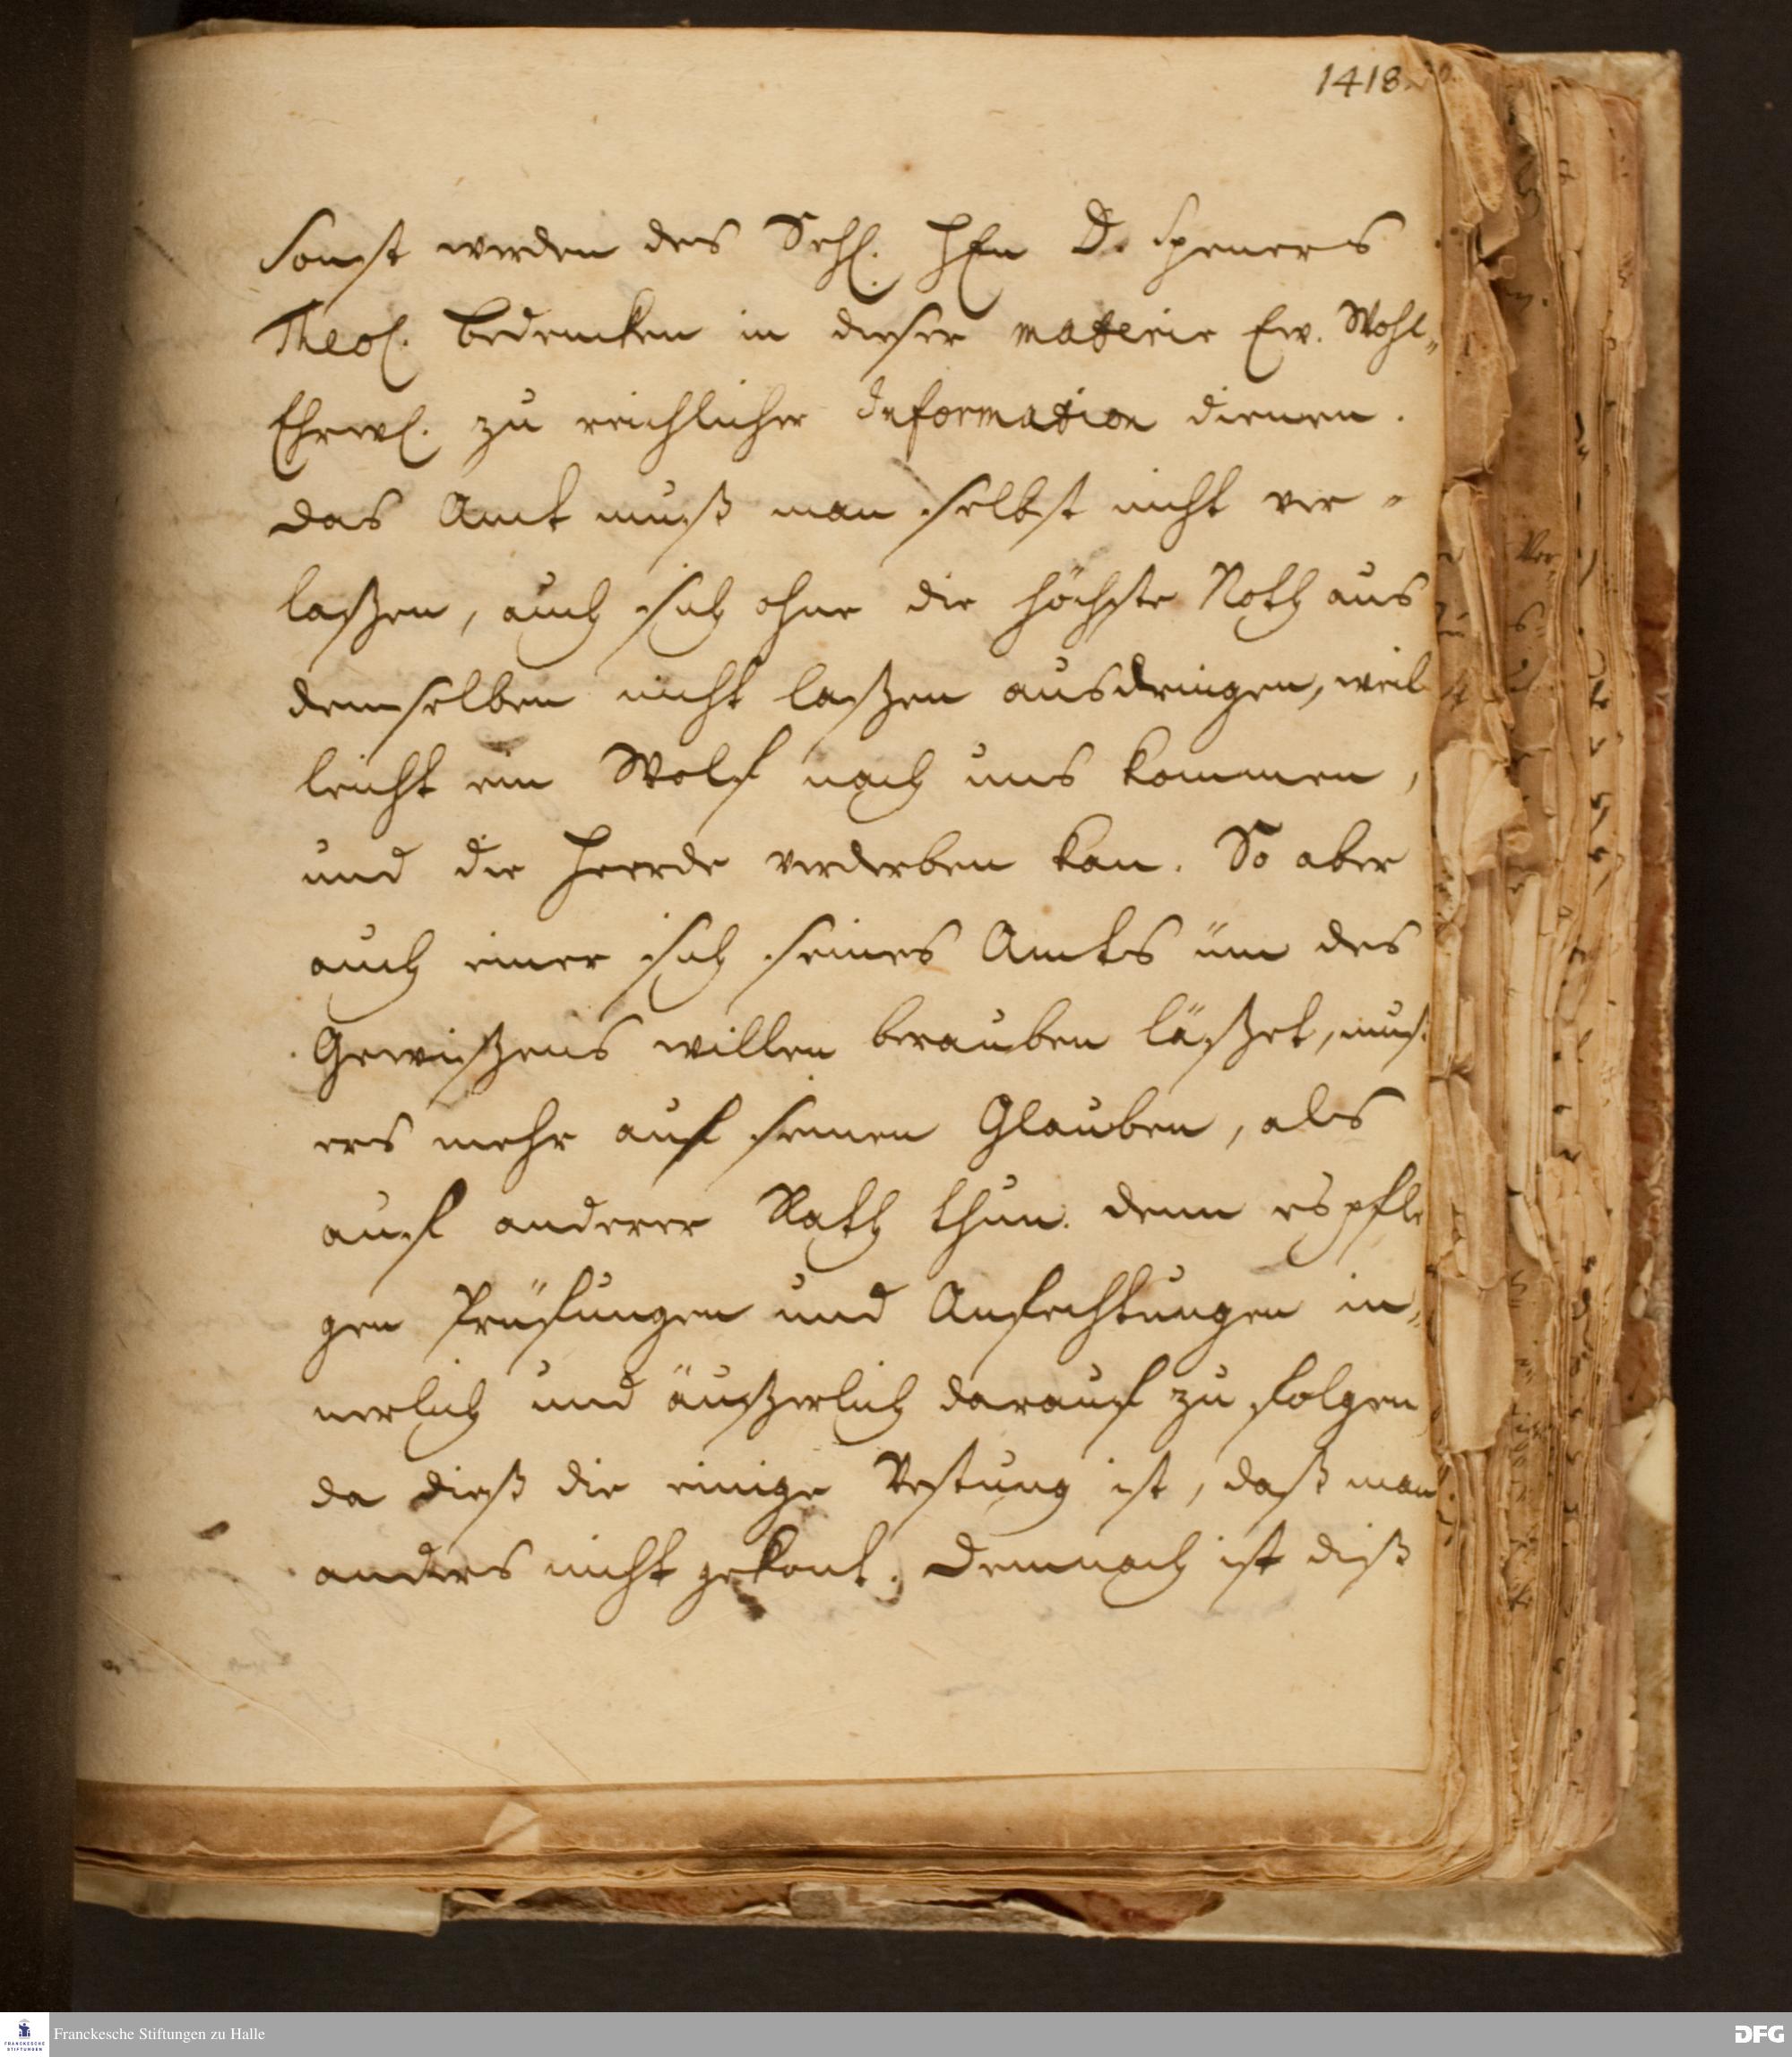 1418.
Sonst werden des Sehl. HEn D. Speners
Theol. Bedencken in dieser materie Ew. Wohl„
Ehrwl. zu reichlicher Information dienen.
Das Amt muß man selbst nicht ver-
laßen, auch sich ohne die höchste Noth aus
demselben nicht laßen ausdringen, weil
leicht ein Wolf nach uns kommen,
und die Heerde verderben kan. So aber
auch einer sich seines Amts üm des
Gewißens willen berauben läßet, muß
ers mehr auf seinen Glauben, als
auf anderer Rath thun. denn es pfle
gen Prüfungen und Anfechtungen in„
nerlich und äußerlich darauf zu folgen
da dieß die einige Vestung ist, daß man
anders nicht gekont. Demnach ist diß
Franckesche Stiftungen zu Halle
FRANCKESCHE
STIFTUNGEN
DFG